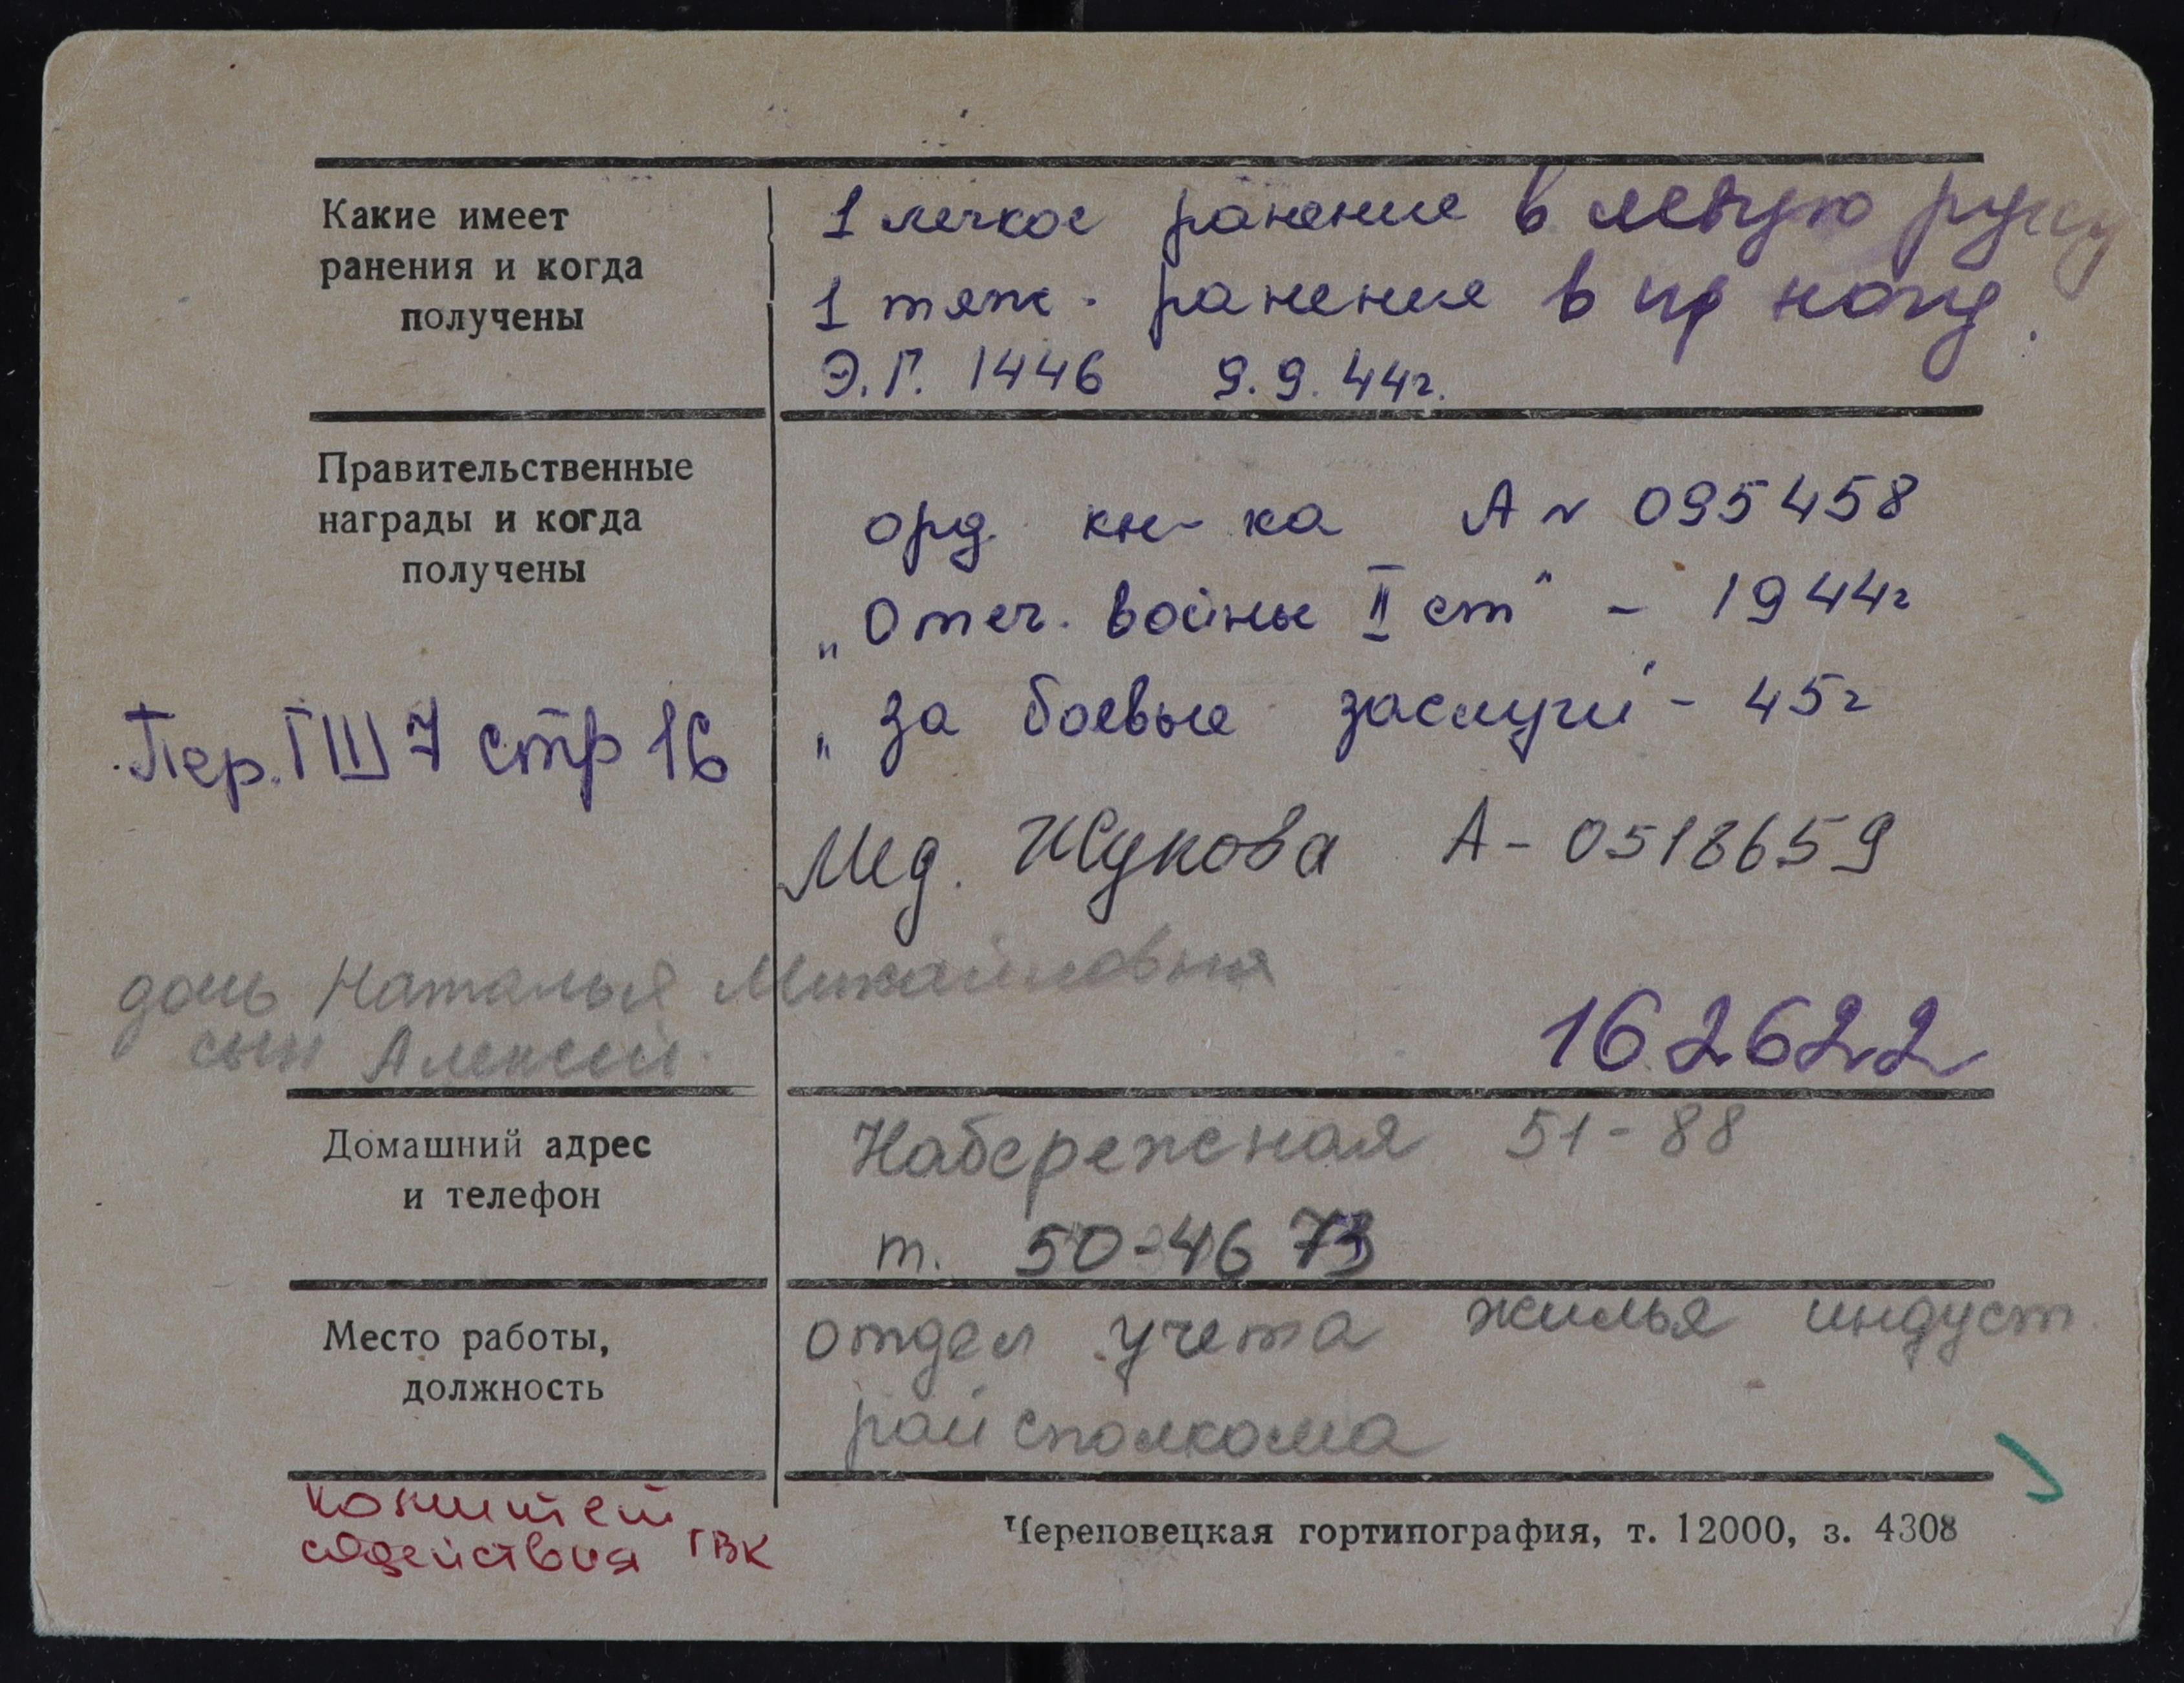 Какие имеет
ранения и когда
получены
1 легкое ранение в левую руку
1 тяж. ранение в пр ногу.
Э.Г. 1446 9.9.44г.
Правительственные
награды и когда
получены
орд. кн-ка А № 095458
„Отеч. войны II ст" - 1944г
„За боевые заслуги" - 45г
Пер. ГШ 7 стр 16
Мед. Жукова А - 0518659
дочь Наталья Михайловна
сын Алексей.
162622
Домашний адрес
и телефон
Набережная 51-88
т. 50-46 73
Место работы,
должность
отдел учета жилья индуст.
райсполкома
комитет
содействия ГВК
Череповецкая гортипография, т. 12000, з. 4308